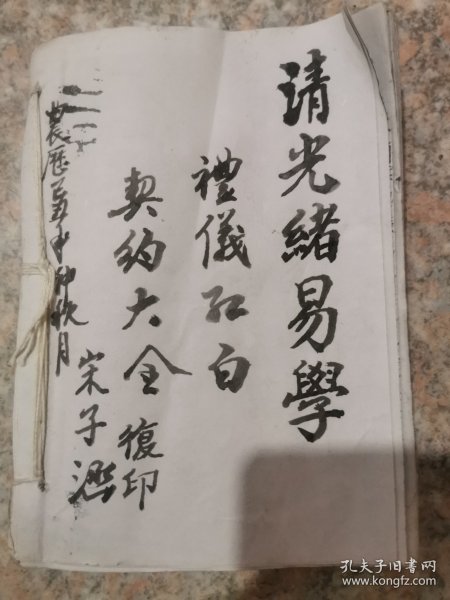 清光緒易學
禮儀紅白
契約大全 復印
宋子
農歷 年仲秋月
孔夫子旧书网
www.kongfz.com